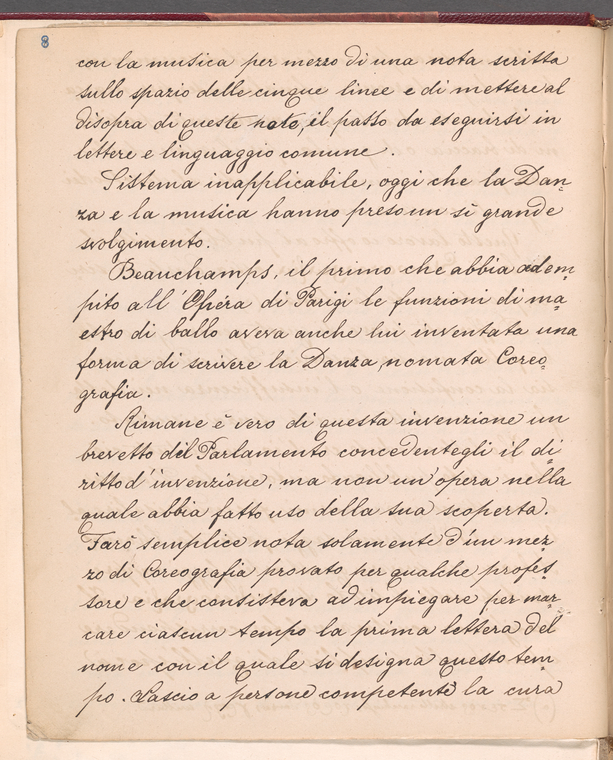 8
con la musica per mezzo di una nota scritta
sullo spazio delle cinque linee e di mettere al
disopra di queste note, il passo da eseguirsi in
lettere e linguaggio comune.
Sistema inapplicabile, oggi che la Dan=
za e la musica hanno preso un sì grande
svolgimento.
Beauchamps, il primo che abbia adem=
pito all'Opéra di Parigi le funzioni di ma=
estro di ballo aveva anche lui inventata una
forma di scrivere la Danza, nomata Coreo=
grafia.
Rimane è vero di questa invenzione un
brevetto del Parlamento concedentegli il di=
ritto d'invenzione, ma non un'opera nella
quale abbia fatto uso della sua scoperta.
Farò semplice nota solamente d'un mez=
zo di Coreografia provato per qualche profes=
sore e che consisteva ad impiegare per mar=
care ciascun tempo la prima lettera del
nome con il quale si designa questo tem=
po. Lascio a persone competenti la cura